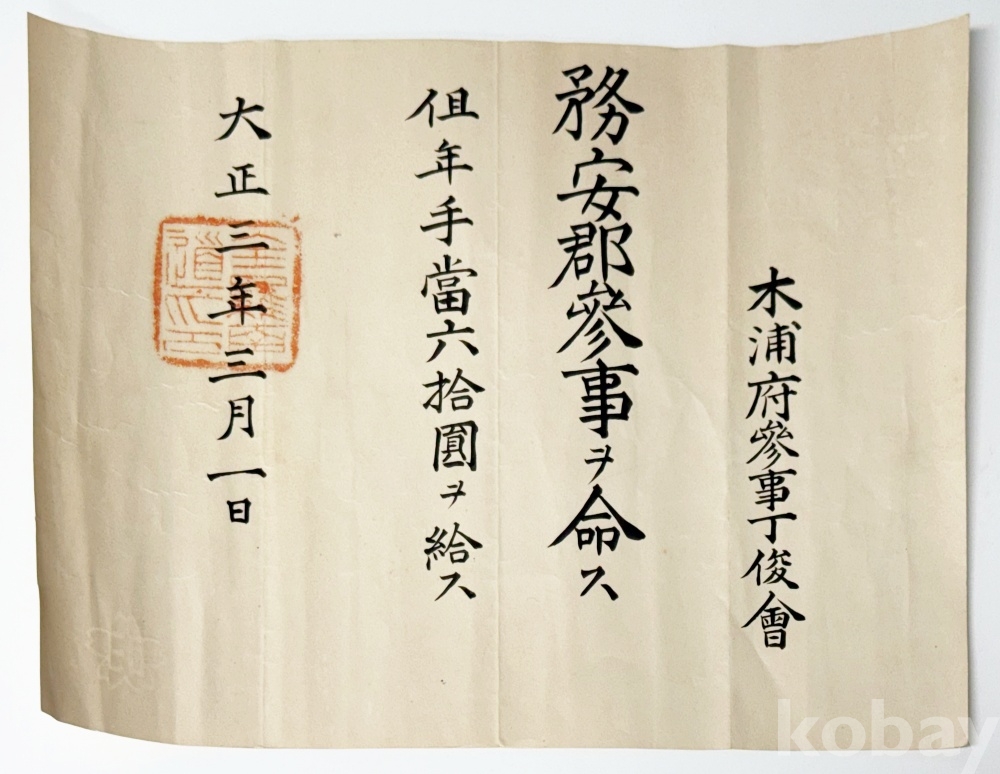 木浦府參事丁俊會
務安郡參事ヲ命ス
但年手當六拾圓ヲ給ス
大正三年三月一日
全羅南道之印
kobay